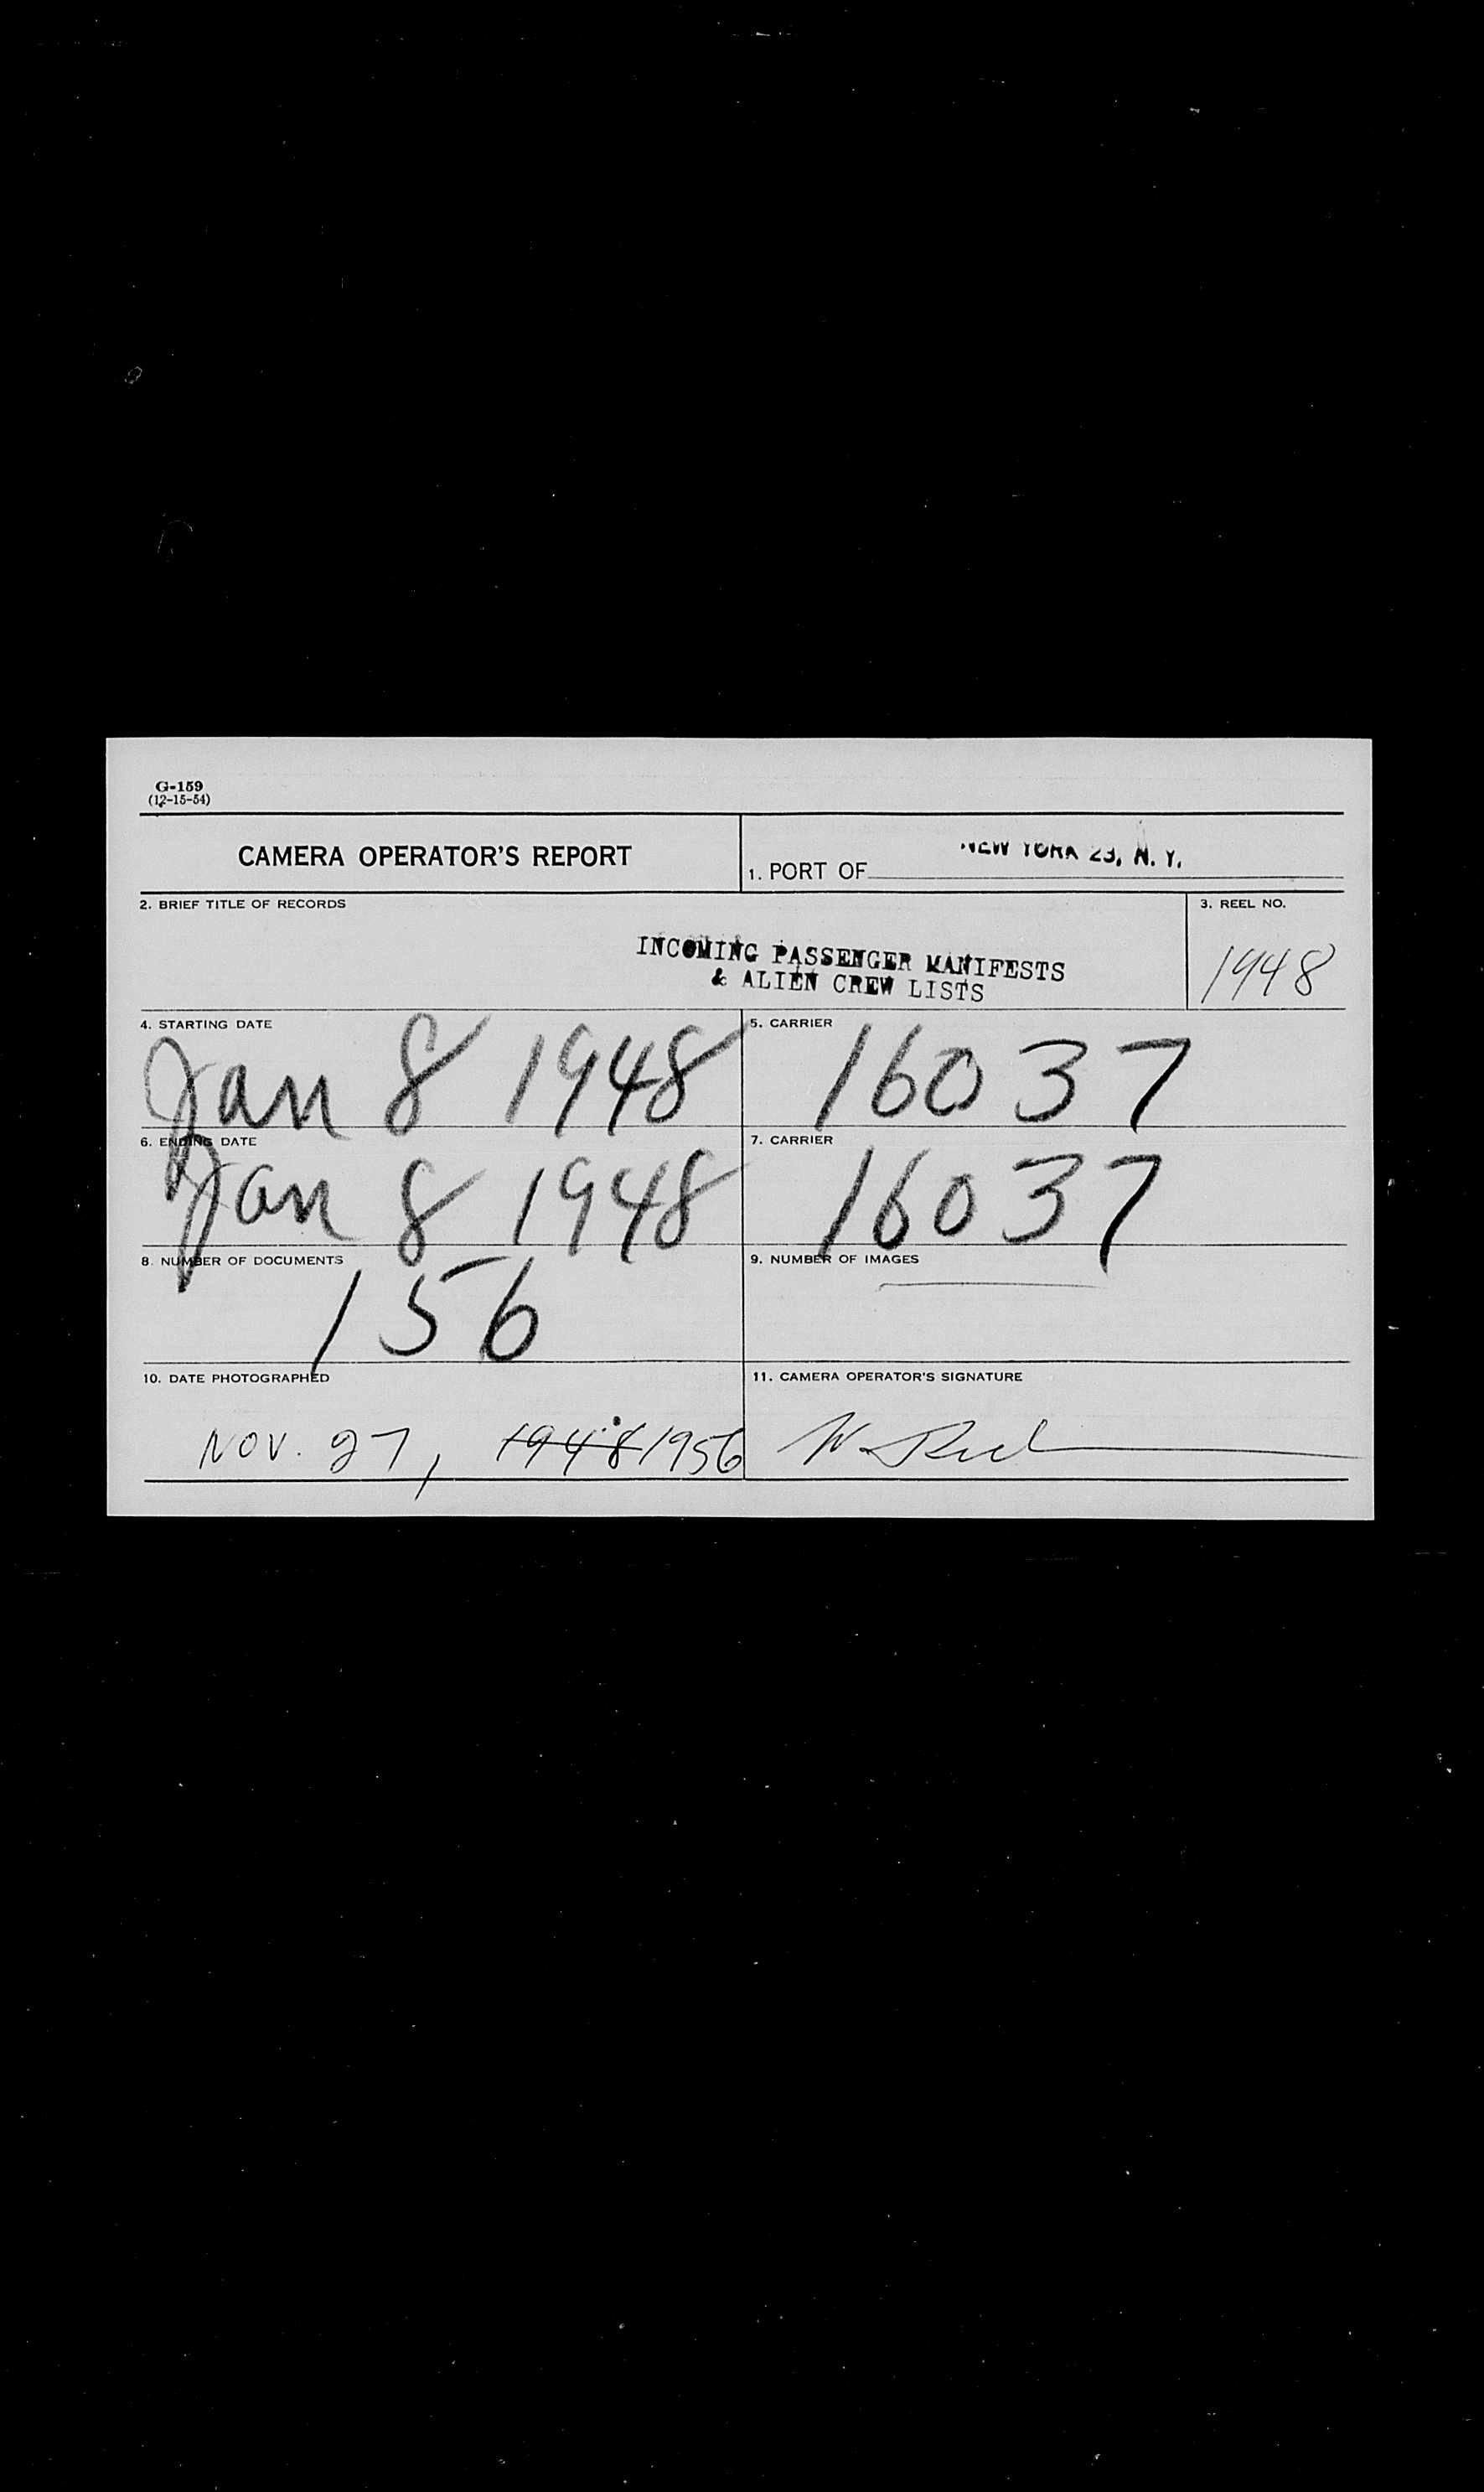 G-159
(12-15-54)
CAMERA OPERATOR'S REPORT
1. PORT OF NEW YORK 23, N. Y.
2. BRIEF TITLE OF RECORDS
INCOMING PASSENGER MANIFESTS
& ALIEN CREW LISTS
3. REEL NO.
1948
4. STARTING DATE
Jan 8 1948
5. CARRIER
16037
6. ENDING DATE
Jan 8 1948
7. CARRIER
16037
8. NUMBER OF DOCUMENTS
156
9. NUMBER OF IMAGES
10. DATE PHOTOGRAPHED
NOV. 27, 1948 1956
11. CAMERA OPERATOR'S SIGNATURE
W.